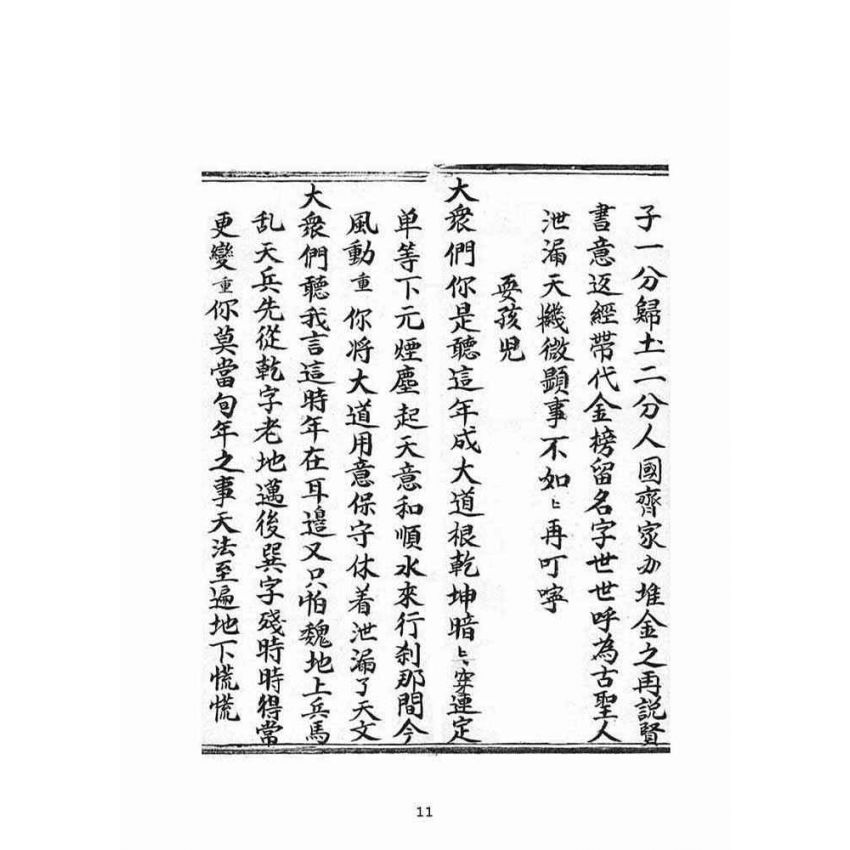 子一分歸土二分人國齊家加堆金之再説賢
書意返經帶代金榜留名字世世呼為古聖人
泄漏天機微顕事不如〻再叮嚀
耍孩児
大衆們你是聽這年成大道根乾坤暗〻穿連定
单等下元煙塵起天意和順水來行刹那間今
風動重你将大道用意保守休着泄漏了天文
大衆們聽我言這時年在耳邉又只怕魏地上兵馬
乱天兵先從乾字老地邁後巽字殘時時得常
更變重你莫當旬年之事天法至遍地下慌慌
11